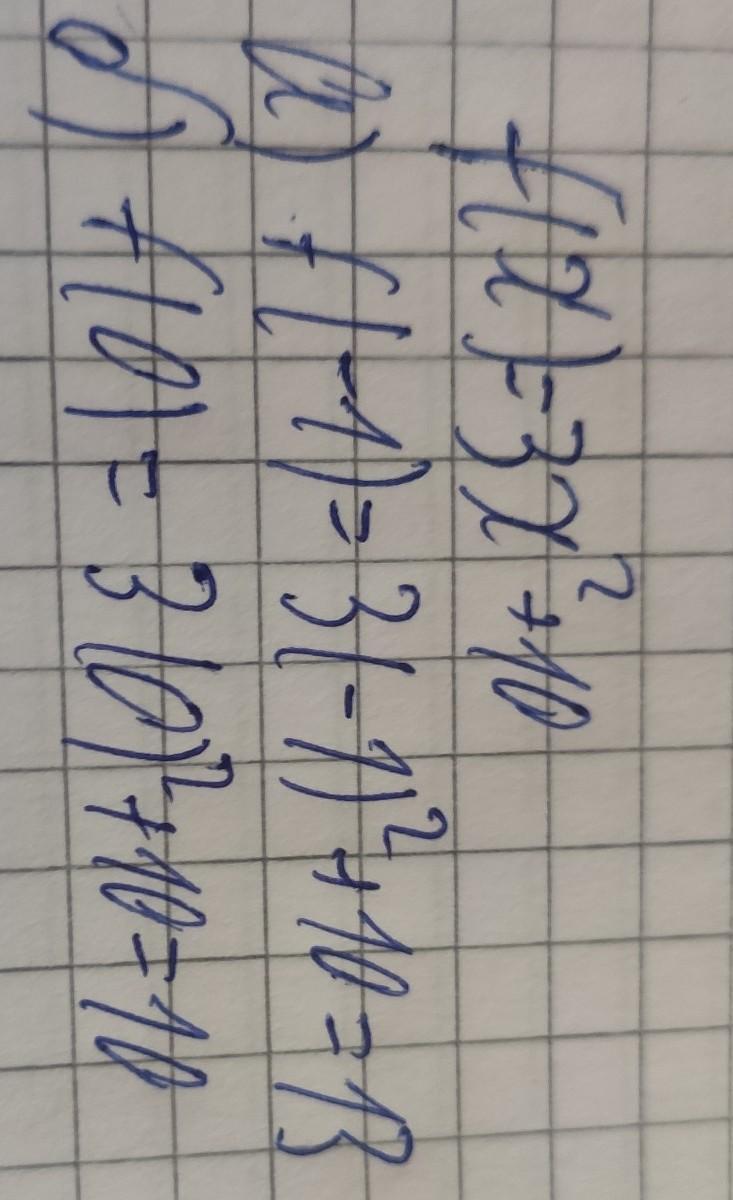 f(x)=3x²+10
а) f(-1)=3(-1)²+10=13
б) f(0)=3(0)²+10=10